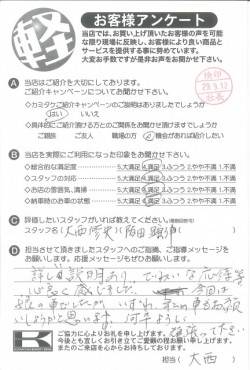 軽
お客様アンケート
当店では、お買い上げ頂いたお客様の声を可能
な限り現場に反映し、お客様により良い商品と
サービスを提供する事に努めております。
大変お手数ですが是非お声をお聞かせ下さい。
検印
29.3.12
A 当店はご紹介を大切にしております。
ご紹介キャンペーンについてお聞かせ下さい。
◇カミタケご紹介キャンペーンのご説明はありましたでしょうか
はい いいえ
◇具体的にご紹介頂ける方とのご関係をお聞かせ頂けますでしょうか
ご親族 ご友人 職場の方 機会があれば紹介したい
B 当店を実際にご利用になった印象をお聞かせ下さい。
◇総合的な満足度 5.大満足 4.満足 3.ふつう 2.やや不満 1.不満
◇スタッフの対応 5.大満足 4.満足 3.ふつう 2.やや不満 1.不満
◇お店の雰囲気、清掃 5.大満足 4.満足 3.ふつう 2.やや不満 1.不満
◇納車時のお車の状態 5.大満足 4.満足 3.ふつう 2.やや不満 1.不満
C 評価したいスタッフがいれば教えてください。
スタッフ名(大西 )(阪田 )
D 担当させて頂きましたスタッフへのご指摘、ご指導メッセージを
お願いします。応援メッセージもぜひお願いします。
詳し 説明あり ていねいな応対等
心良く感じました。 今回は
の車でしたが いずれ 車もお願
いしようかと思います。何卒よろしく
頑張って下さい
ご協力に心よりお礼を申し上げます。
今後とも宜しくお引き立てご愛顧の程お願い申し上げます。
またのご来店を心からお待ちしております。
担当(大西)